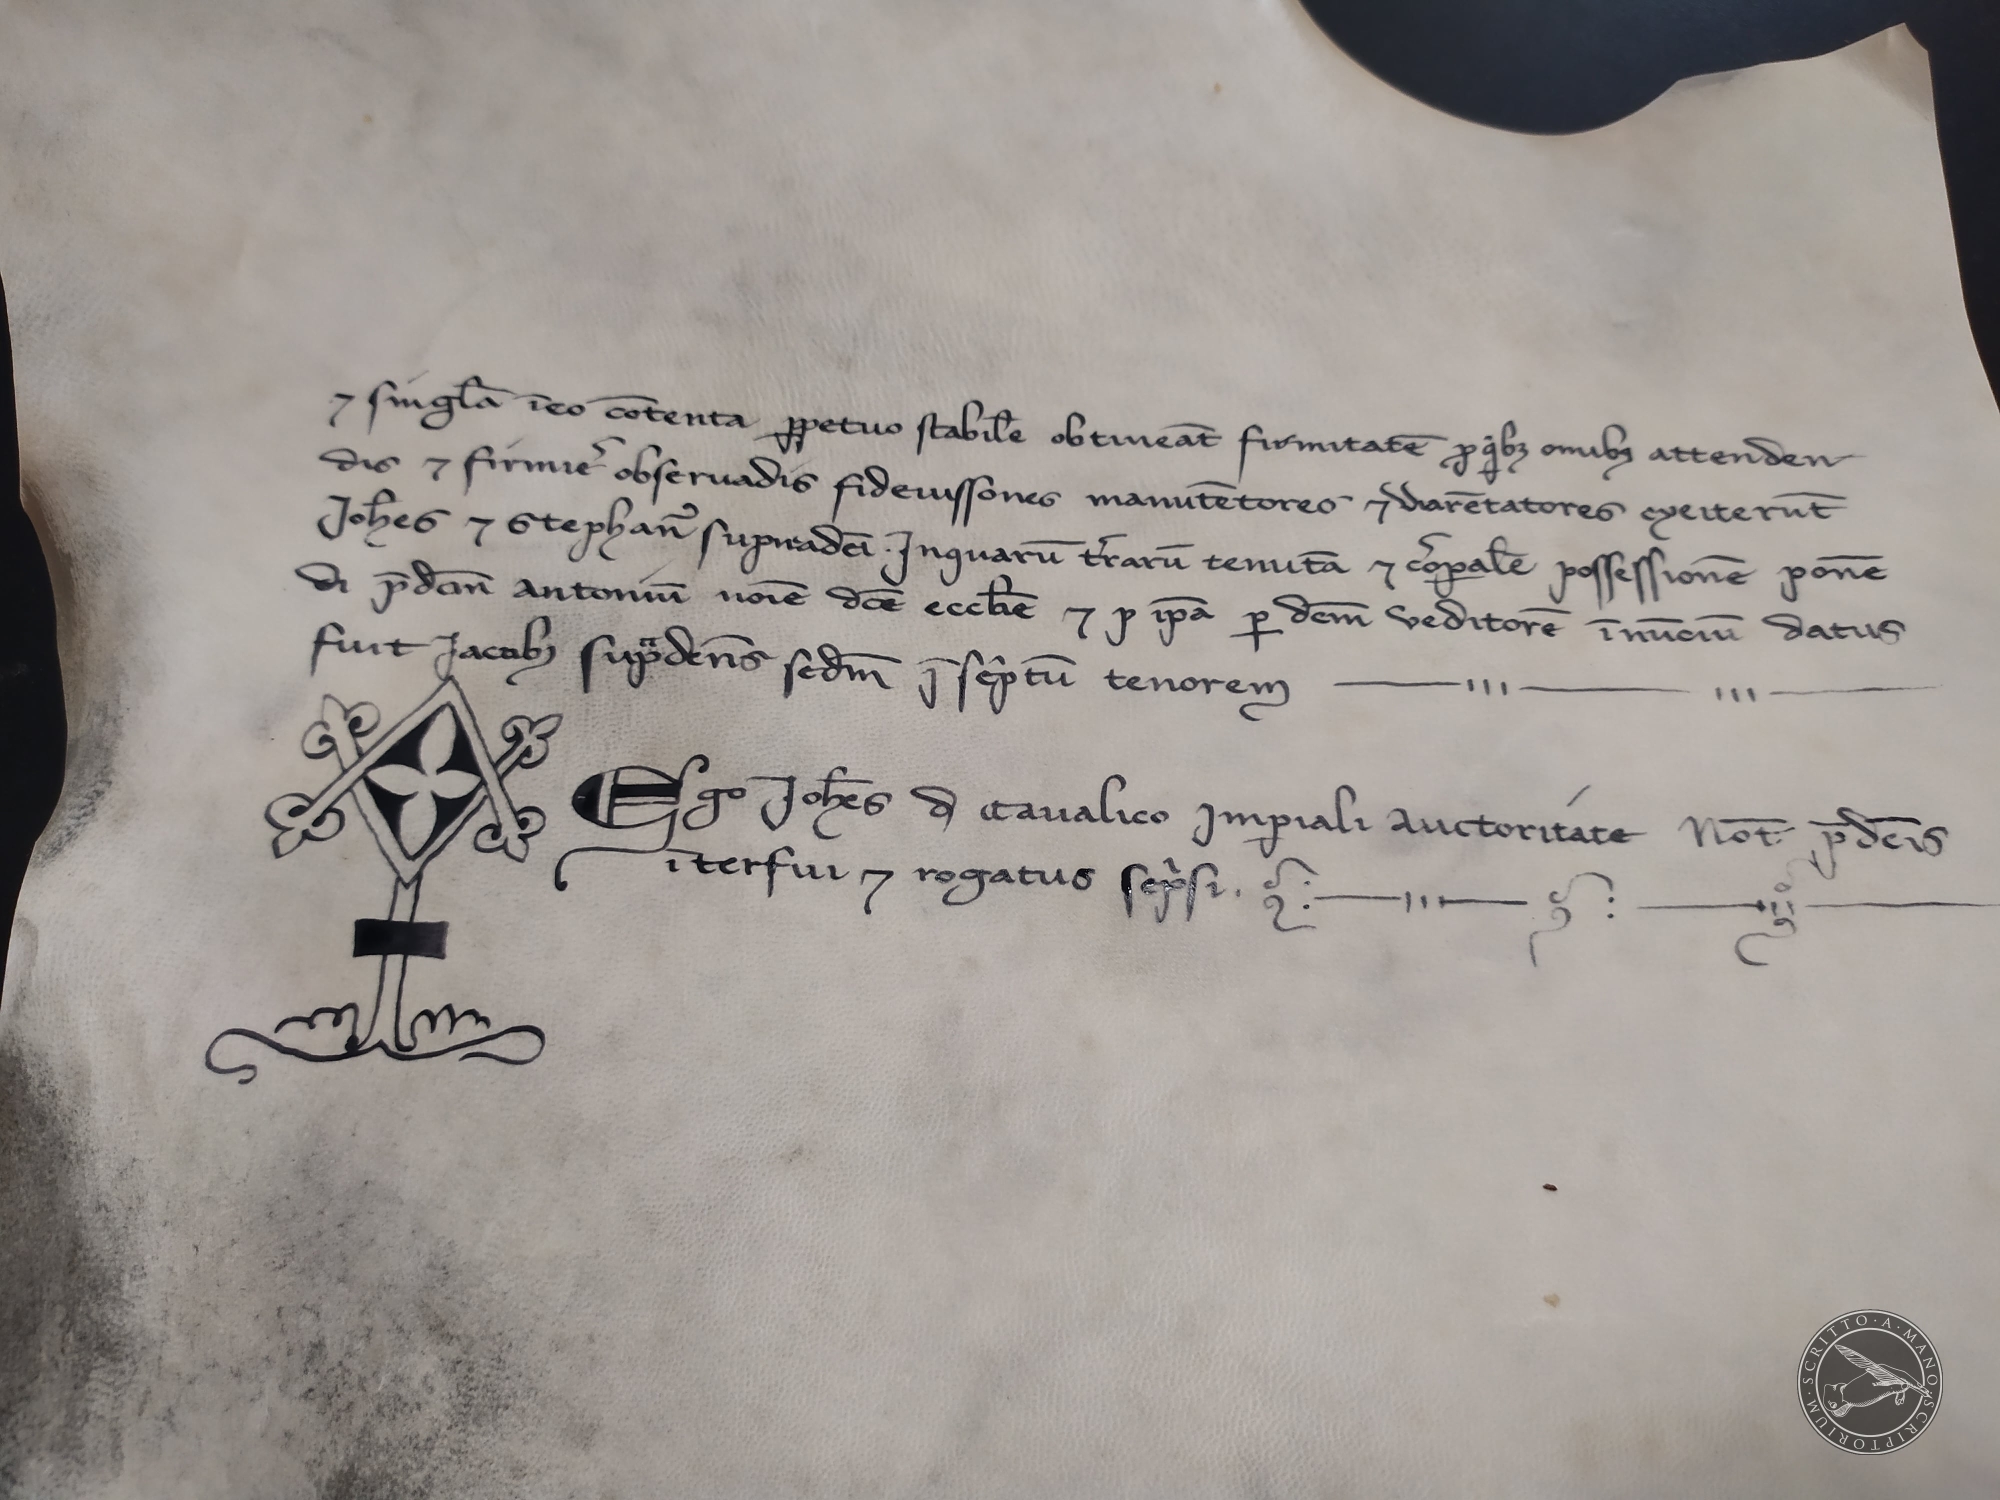 ⁊ singl̄a ī eo cōtenta ꝑpetuo stabil̄e obtineāt firmitatē ꝓ qͥbꝫ omibꝫ attenden
dis ⁊ firmiẽ obseruādis fideiussores manutētores ⁊ Varētatores exeiterūt
Joh̄es ⁊ Stephanꝰ supradc̄i . Jnquarū t̄rarū tenutā ⁊ cor̄ꝑal̄e possessionē ponē
di p̄dcm̄ Antoniū noīe dc̄e eccl̄ie ⁊ ꝓ ip̄a ꝑ dc̄m Vēditorē ī nūciū datus
fuit Jacobꝫ sup̄dcūs scdm̄ j̄ sc̄ptū tenorem
Ego Joh̄es d̄ Cavalico Jmꝑiali Auctoritate Not̄. p̄dc̄is
īterfui ⁊ rogatus scͥpsi.
SCRITTO · A · MANO · SCRIPTORIUM ·